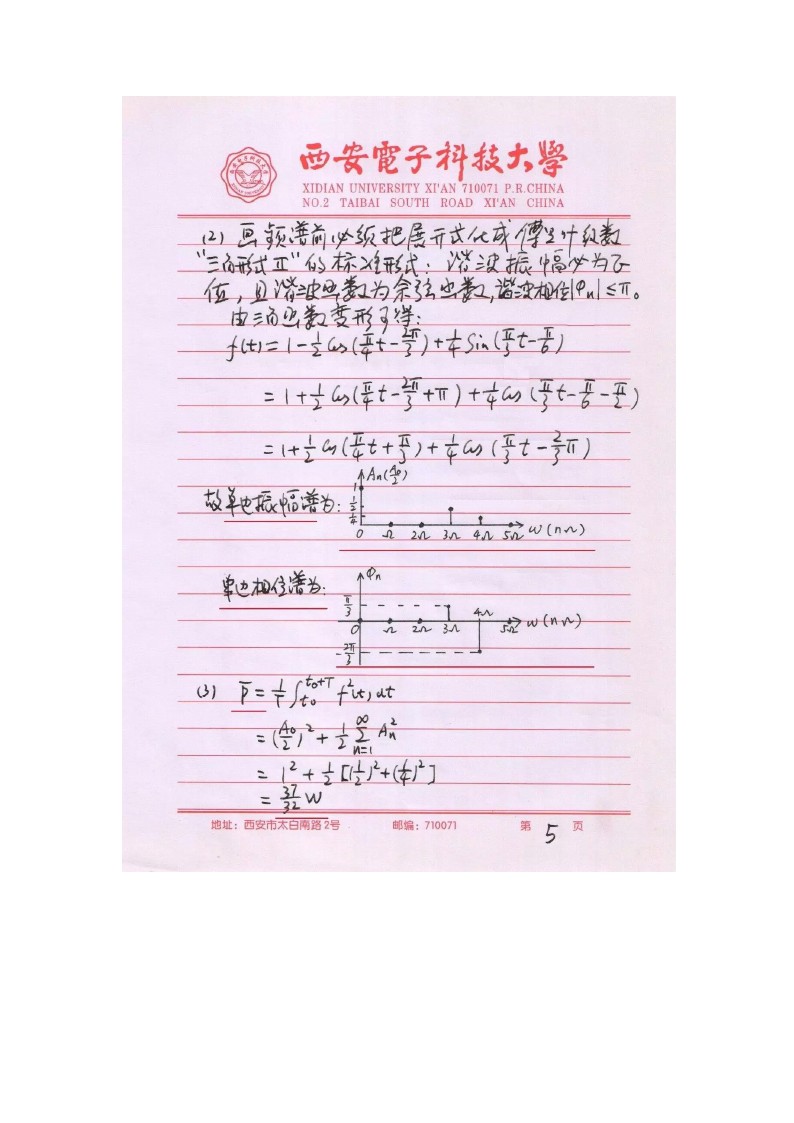 西安電子科技大學
XIDIAN UNIVERSITY XI'AN 710071 P.R.CHINA
NO.2 TAIBAI SOUTH ROAD XI'AN CHINA
(2) 画频谱前必须把展开式化成傅里叶级数
"三角形式Ⅱ"的标准形式：谐波振幅必为正
值，且谐波函数为余弦函数，谐波相位|φn|≤π。
由三角函数变形可得：
f(t)=1-1/2 Cos(π/4 t-2π/3)+1/4 Sin(π/3 t-π/6)
=1+1/2 Cos(π/4 t-2π/3+π)+1/4 Cos(π/3 t-π/6-π/2)
=1+1/2 Cos(π/4 t+π/3)+1/4 Cos(π/3 t-2/3 π)
An(A0/2)
1
故单边振幅谱为：
1/2
1/4
0 Ω 2Ω 3Ω 4Ω 5Ω ω(nΩ)
φn
单边相位谱为：
π/3
4Ω
0 Ω 2Ω 3Ω 5Ω ω(nΩ)
-2π/3
(3) P̄=1/T ∫t0^(t0+T) f²(t)dt
=(A0/2)²+1/2 Σn=1^∞ An²
=1²+1/2[(1/2)²+(1/4)²]
=37/32 W
地址：西安市太白南路2号 邮编：710071 第 5 页